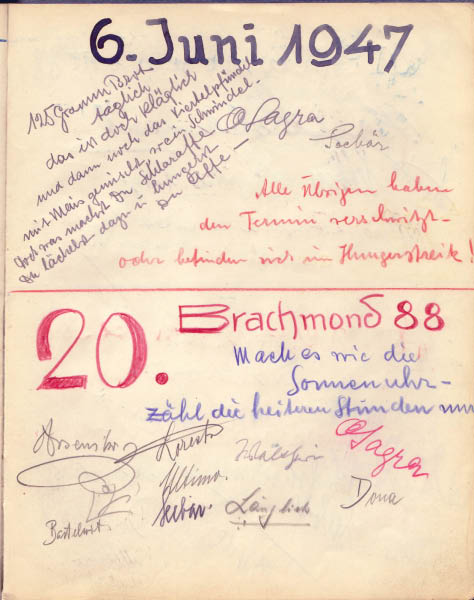 6. Juni 1947
125 Gramm Brot
täglich
das ist doch kläglich
und dann noch das Viertelpfündchen
mit Mais gemischt, rein Schwindel.
Und was machst Du Schlaraffe
Du lächelst dazu u. hungerst
Du Affe –
Sagra
Sochár
Alle Übrigen haben
den Termin verschwitzt –
oder befinden sich im Hungerstreik!
20. Brachmond 88
Mach es wie die
Sonnenuhr –
zähl die heiteren Stunden nur
Sagra
Ultimo.
Bastelwit.
Länglich
Dona